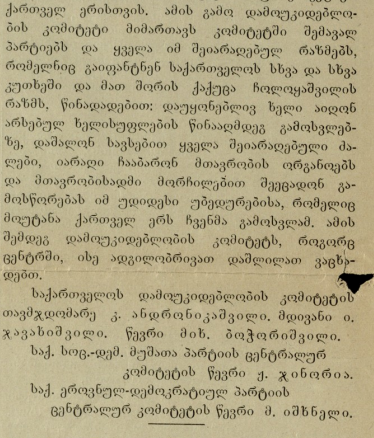 ქართველ ერისთვის. ამის გამო დამოუკიდებლო-
ბის კომიტეტი მიმართავს კომიტეტში შემავალ
პარტიებს და ყველა იმ შეიარაღებულ რაზმებს,
რომელნიც გაიფანტნენ საქართველოს სხვა და სხვა
კუთხეში და მათ შორის ქაქუცა ჩოლოყაშვილის
რაზმს, წინადადებით: დაუყონებლივ ხელი აიღონ
არსებულ ხელისუფლების წინააღმდეგ გამოსვლებ-
ზე, დაშალონ სავსებით ყველა შეიარაღებული ძა-
ლები, იარაღი ჩააბარონ მთავრობის ორგანოებს
და მთავრობისადმი მორჩილებით შეეცადონ გა-
მოსწორებას იმ უდიდესი უბედურებისა, რომელიც
მოუტანა ქართველ ერს ჩვენმა გამოსვლამ. ამის
შემდეგ დამოუკიდებლობის კომიტეტს, როგორც
ცენტრში, ისე ადგილობრივათ დაშლილათ ვაცხა-
დებთ.
საქართველოს დამოუკიდებლობის კომიტეტის
თავმჯდომარე კ. ანდრონიკაშვილი. მდივანი ი.
ჯავახიშვილი. წევრი მიხ. ბოჭორიშვილი.
საქ. სოც.-დემ. მუშათა პარტიის ცენტრალურ
კომიტეტის წევრი ჟ. ჯინორია.
საქ. ეროვნულ-დემოკრატიულ პარტიის
ცენტრალურ კომიტეტის წევრი მ. იშხნელი.